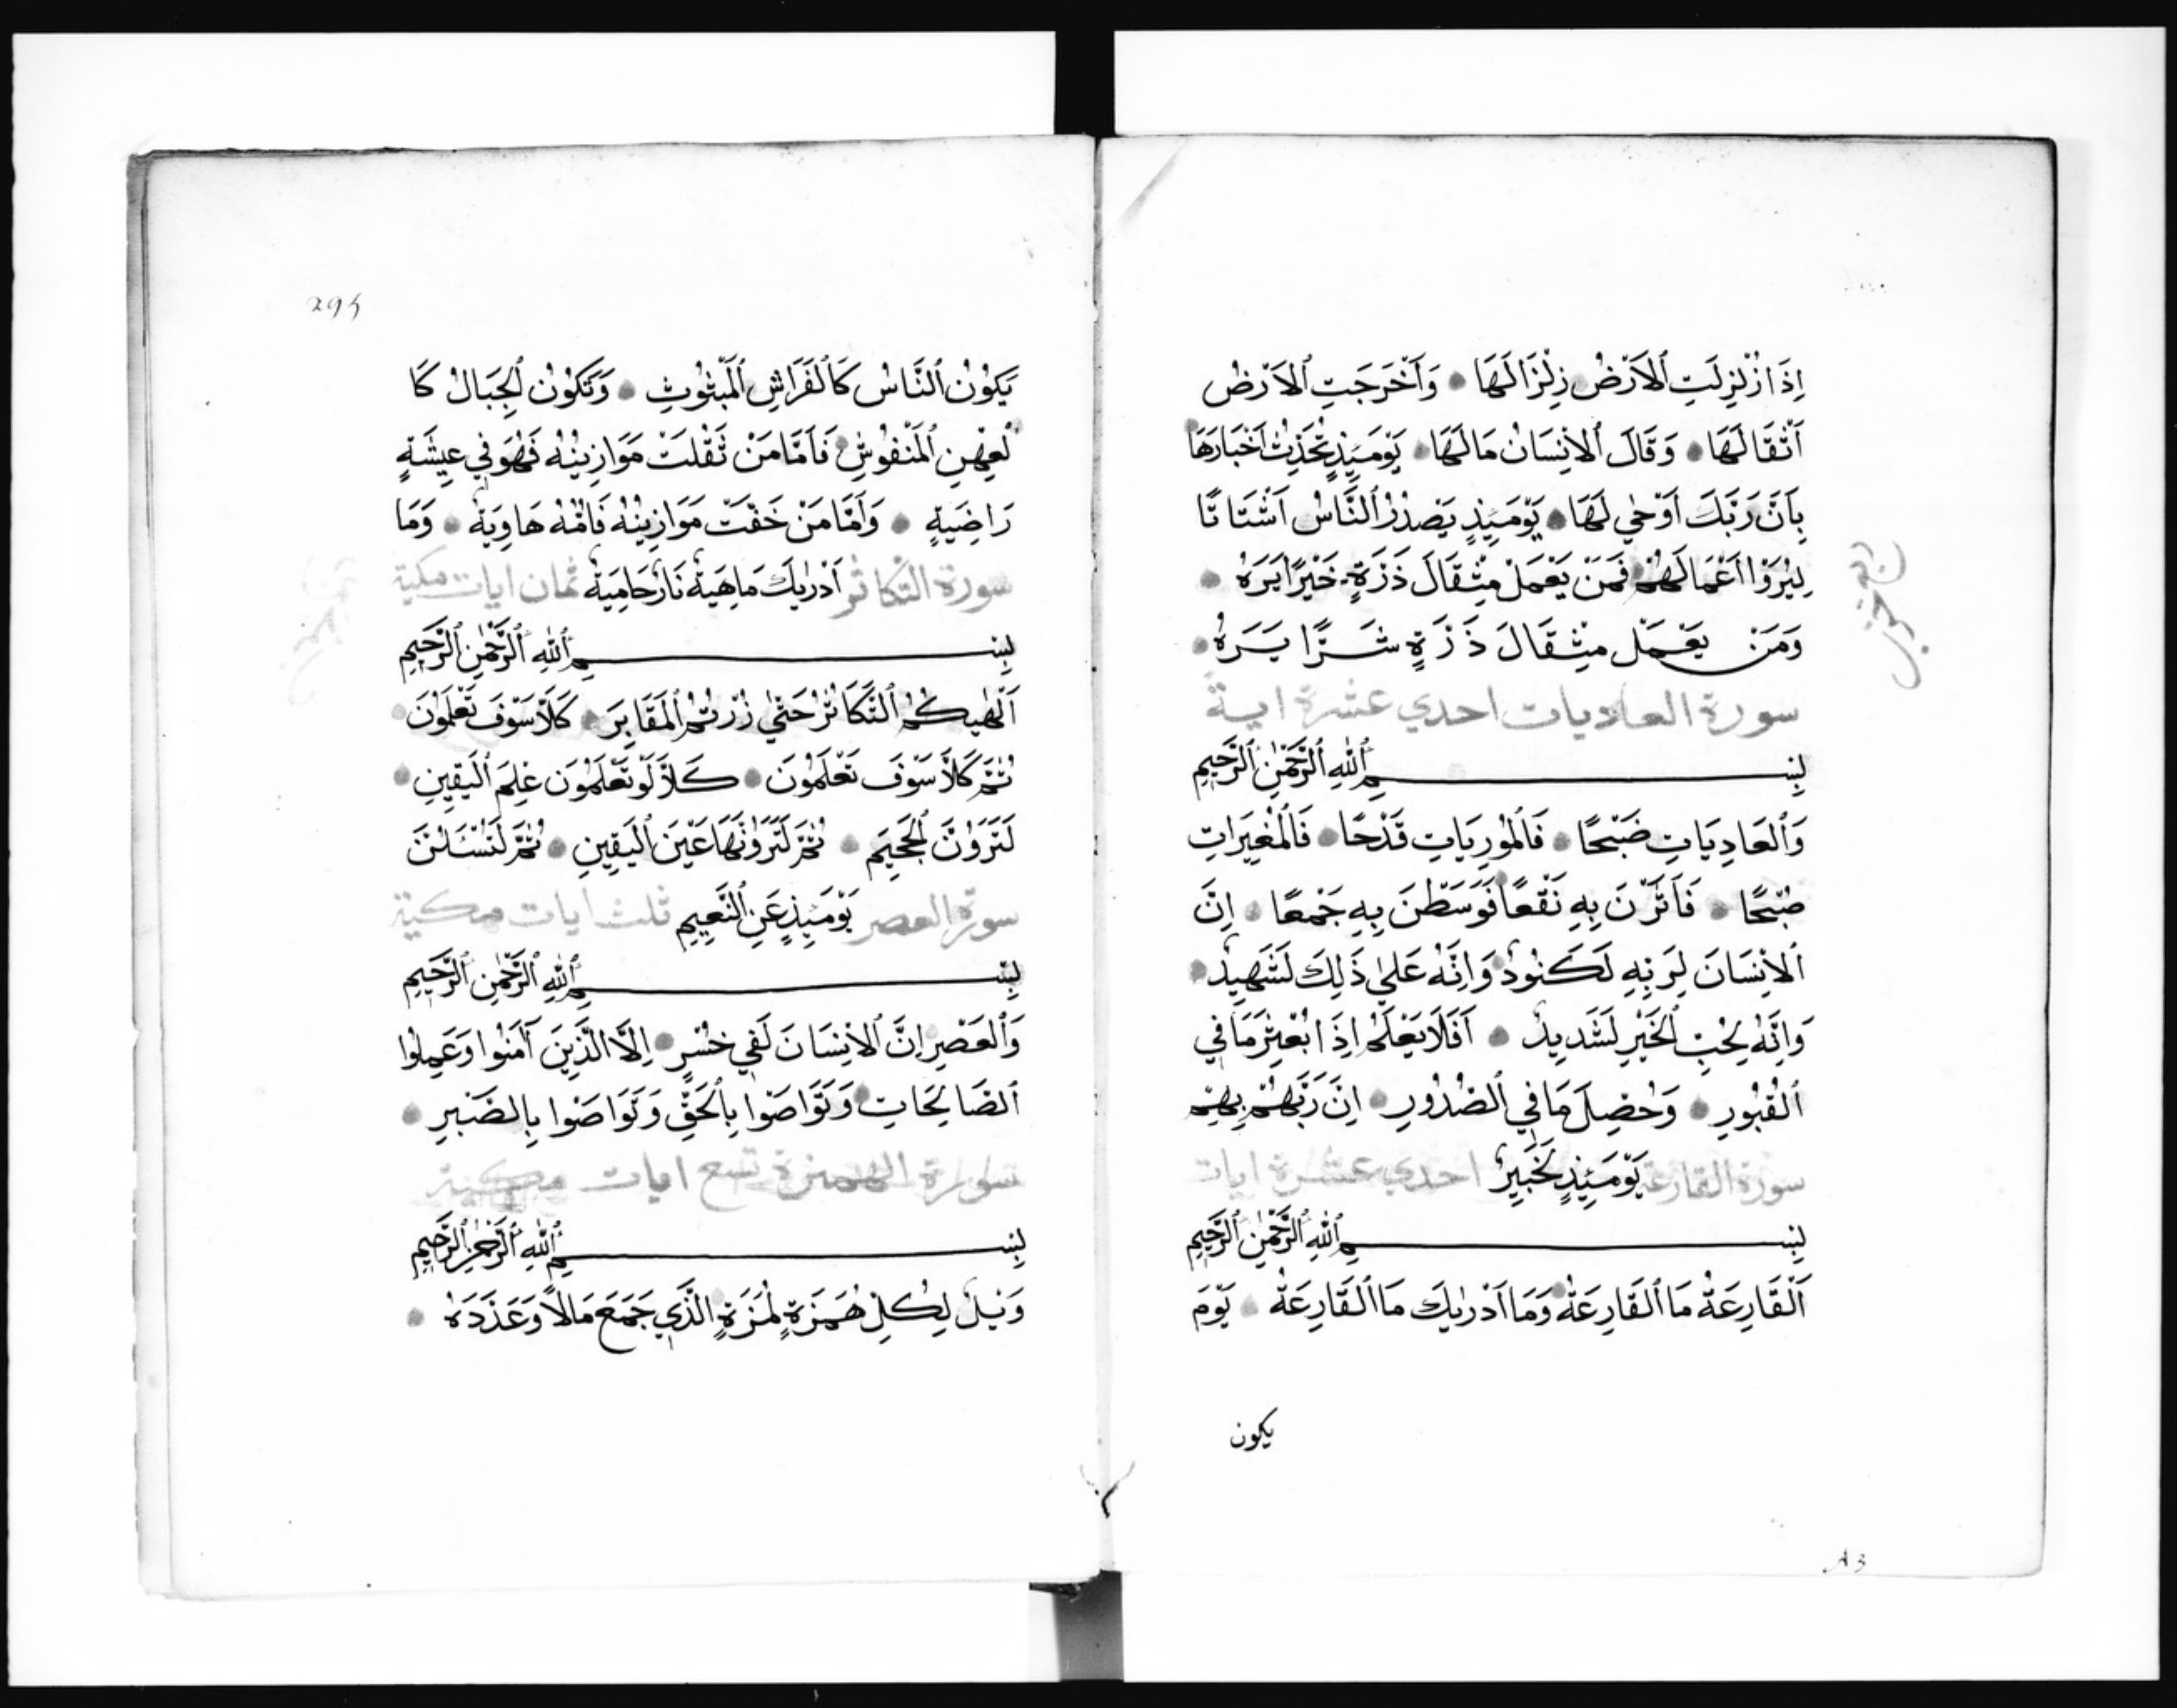 اِذَا زُلْزِلَتِ ٱلْاَرْضُ زِلْزَالَهَا وَاَخْرَجَتِ ٱلْاَرْضُ
اَثْقَالَهَا وَقَالَ ٱلْاِنْسَانُ مَالَهَا يَوْمَئِذٍ تُحَدِّثُ اَخْبَارَهَا
بِاَنَّ رَبَّكَ اَوْحٰي لَهَا يَوْمَئِذٍ يَصْدُرُ ٱلنَّاسُ اَشْتَاتًا
لِيُرَوْا اَعْمَالَهُمْ فَمَنْ يَعْمَلْ مِثْقَالَ ذَرَّةٍ خَيْرًا يَرَهُ
وَمَنْ يَعْمَلْ مِثْقَالَ ذَرَّةٍ شَرًّا يَرَهُ
سورة العاديات احدي عشرة اية
بِسْمِ ٱللّٰهِ ٱلرَّحْمٰنِ ٱلرَّحِيمِ
وَٱلْعَادِيَاتِ ضَبْحًا فَالْمُورِيَاتِ قَدْحًا فَالْمُغِيرَاتِ
صُبْحًا فَاَثَرْنَ بِهِ نَقْعًا فَوَسَطْنَ بِهِ جَمْعًا اِنَّ
ٱلْاِنْسَانَ لِرَبِّهِ لَكَنُودٌ وَاِنَّهُ عَلٰي ذَلِكَ لَشَهِيدٌ
وَاِنَّهُ لِحُبِّ ٱلْخَيْرِ لَشَدِيدٌ اَفَلَا يَعْلَمُ اِذَا بُعْثِرَ مَا فِي
ٱلْقُبُورِ وَحُصِّلَ مَا فِي ٱلصُّدُورِ اِنَّ رَبَّهُمْ بِهِمْ
سورة القارعة يَوْمَئِذٍ لَخَبِيرٌ احدي عشرة ايات
بِسْمِ ٱللّٰهِ ٱلرَّحْمٰنِ ٱلرَّحِيمِ
اَلْقَارِعَةُ مَا ٱلْقَارِعَةُ وَمَا اَدْرٰيكَ مَا ٱلْقَارِعَةُ يَوْمَ
يكون
295
يَكُونُ ٱلنَّاسُ كَالْفَرَاشِ ٱلْمَبْثُوثِ وَتَكُونُ ٱلْجِبَالُ كَا
لْعِهْنِ ٱلْمَنْفُوشِ فَاَمَّا مَنْ ثَقُلَتْ مَوَازِينُهُ فَهُوَ فِي عِيشَةٍ
رَاضِيَةٍ وَاَمَّا مَنْ خَفَّتْ مَوَازِينُهُ فَاُمُّهُ هَاوِيَةٌ وَمَا
سورة التكاثر اَدْرٰيكَ مَاهِيَهْ نَارٌ حَامِيَةٌ ثمان ايات مكية
بِسْمِ ٱللّٰهِ ٱلرَّحْمٰنِ ٱلرَّحِيمِ
اَلْهٰيكُمُ ٱلتَّكَاثُرُ حَتّٰي زُرْتُمُ ٱلْمَقَابِرَ كَلَّا سَوْفَ تَعْلَمُونَ
ثُمَّ كَلَّا سَوْفَ تَعْلَمُونَ كَلَّا لَوْ تَعْلَمُونَ عِلْمَ ٱلْيَقِينِ
لَتَرَوُنَّ ٱلْجَحِيمَ ثُمَّ لَتَرَوُنَّهَا عَيْنَ ٱلْيَقِينِ ثُمَّ لَتُسْئَلُنَّ
سورة العصر يَوْمَئِذٍ عَنِ ٱلنَّعِيمِ ثلث ايات مكية
بِسْمِ ٱللّٰهِ ٱلرَّحْمٰنِ ٱلرَّحِيمِ
وَٱلْعَصْرِ اِنَّ ٱلْاِنْسَانَ لَفِي خُسْرٍ اِلَّا الَّذِينَ آمَنُوا وَعَمِلُوا
ٱلصَّالِحَاتِ وَتَوَاصَوْا بِالْحَقِّ وَتَوَاصَوْا بِالصَّبْرِ
سورة الهمزة تسع ايات مكية
بِسْمِ ٱللّٰهِ ٱلرَّحْمٰنِ ٱلرَّحِيمِ
وَيْلٌ لِكُلِّ هُمَزَةٍ لُمَزَةٍ الَّذِي جَمَعَ مَالًا وَعَدَّدَهُ